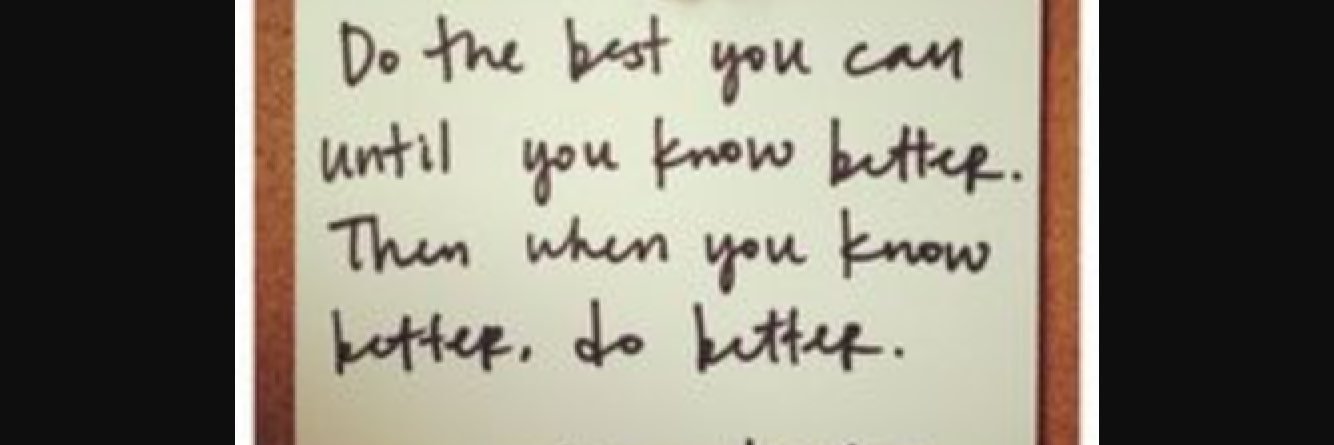 Do the best you can
until you know better.
Then when you know
better, do better.